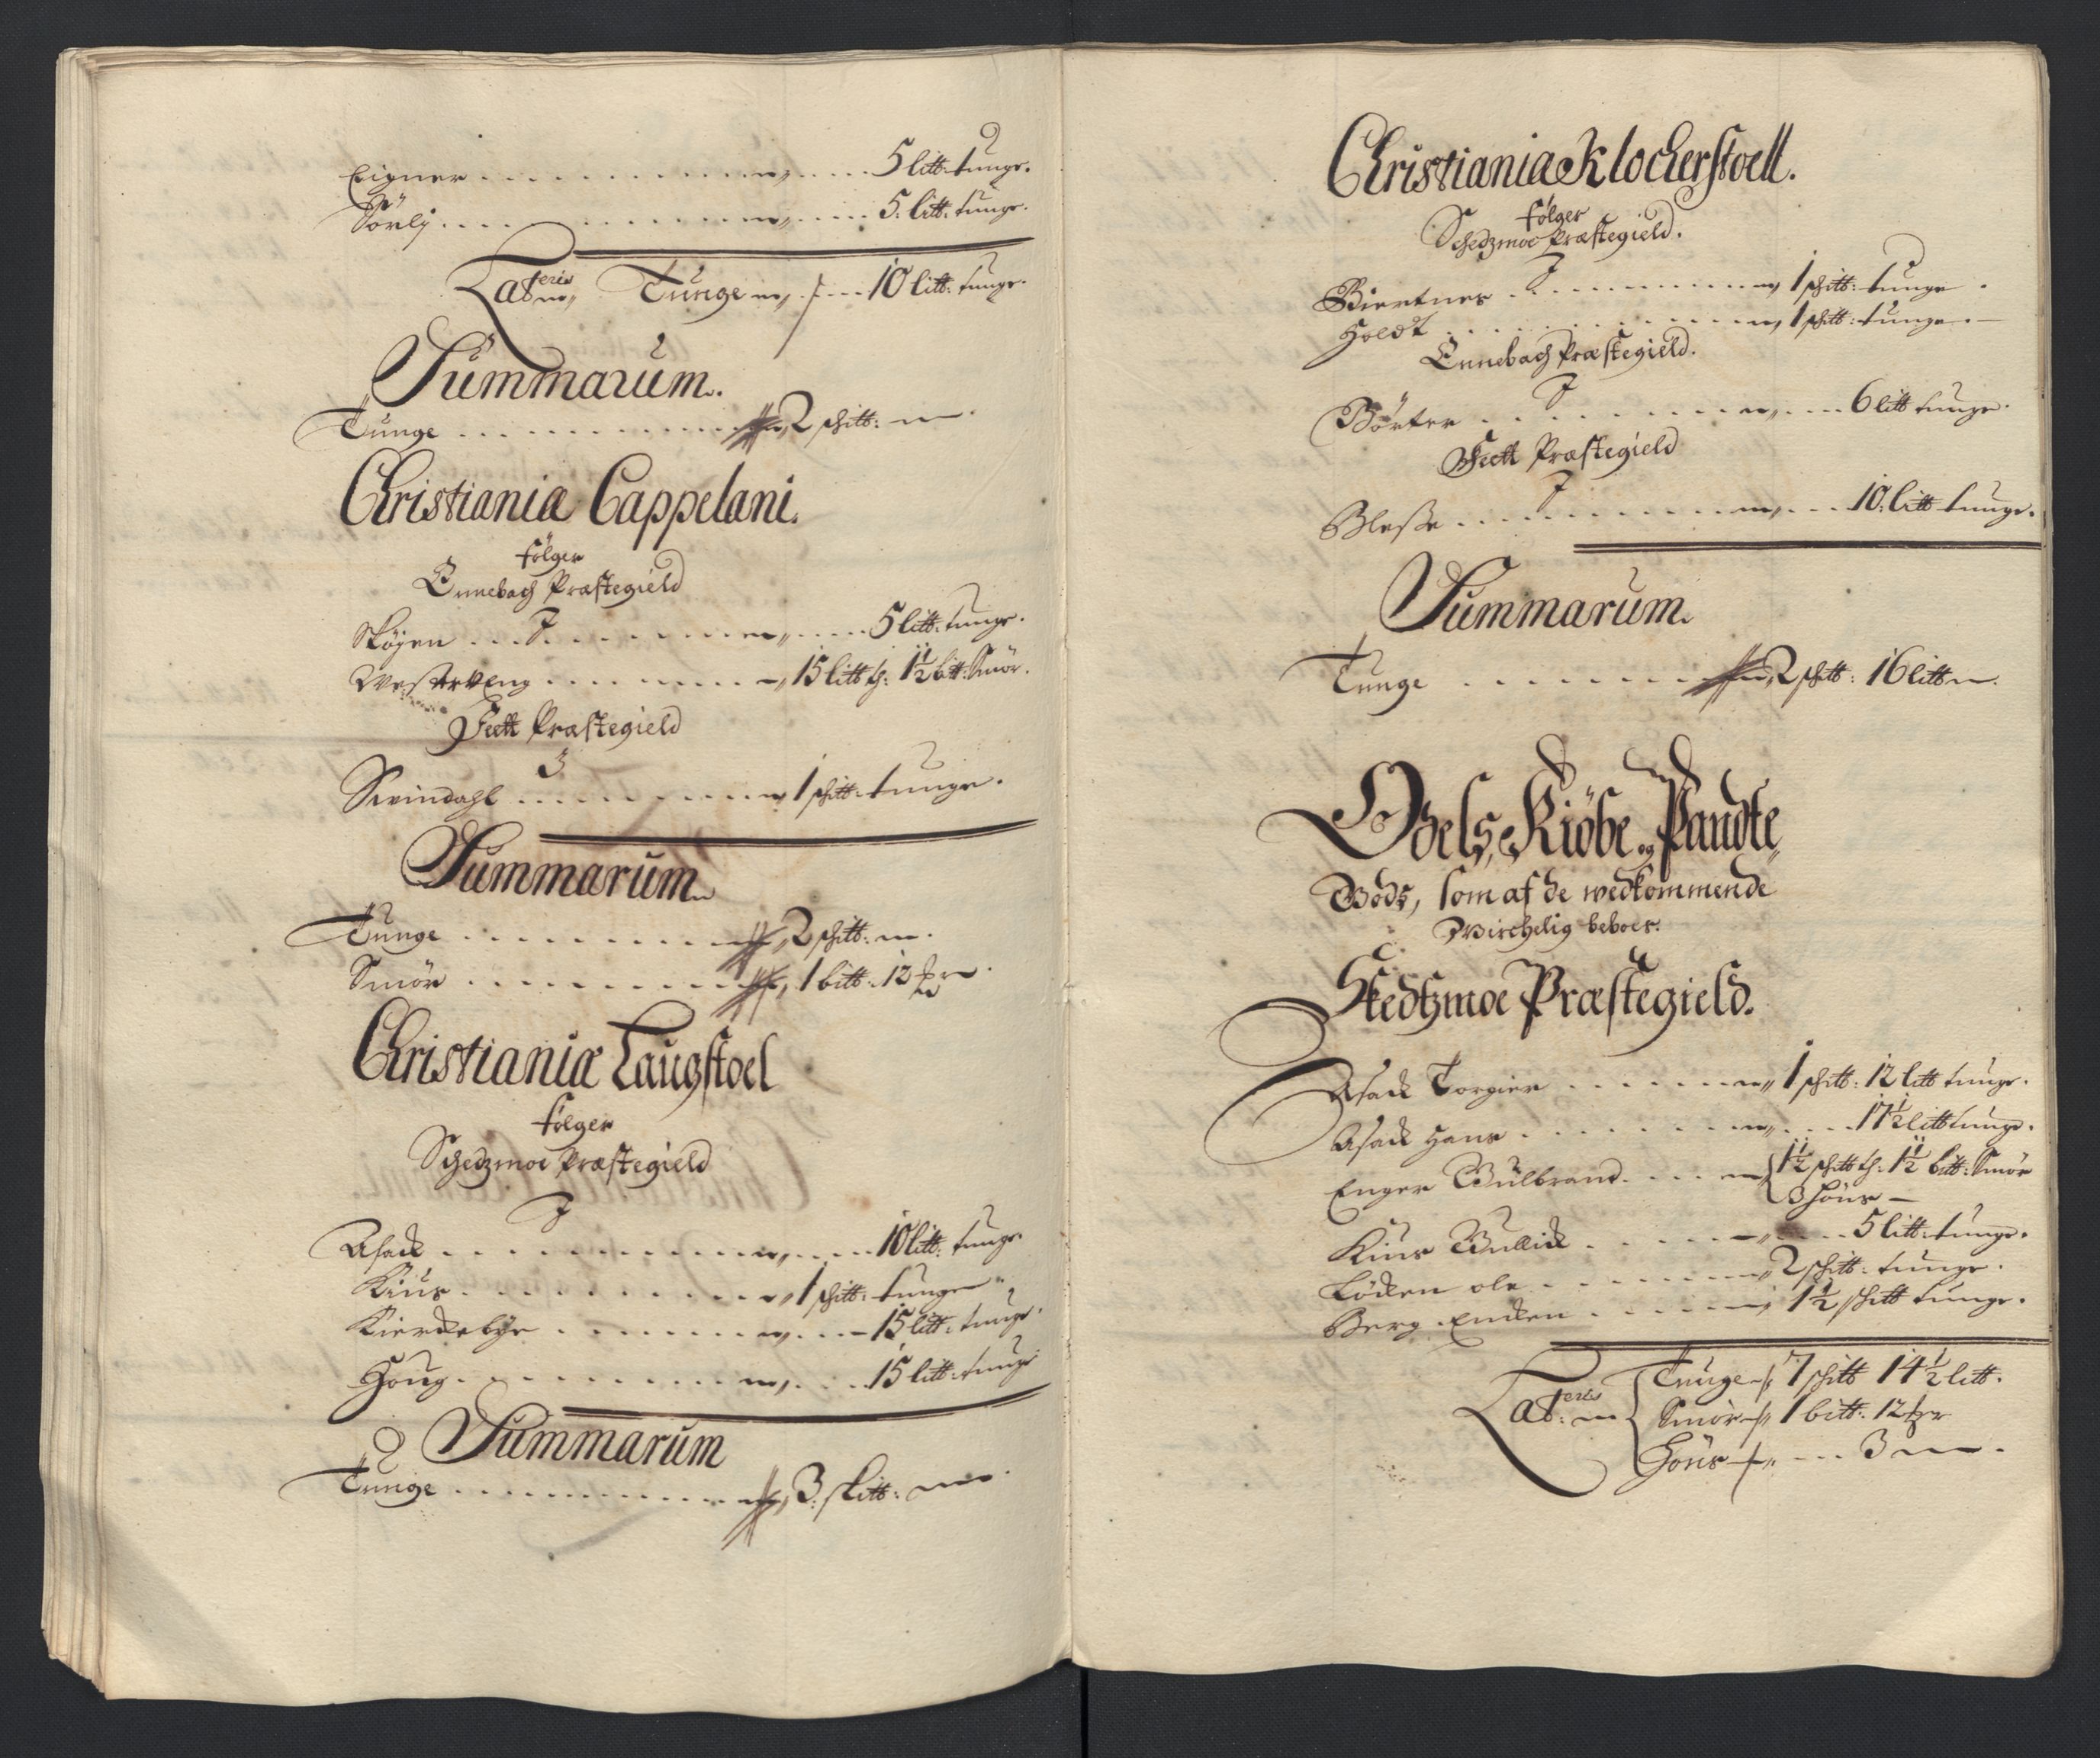 Eigner . . . . . . . . . . . . 5 litt: tunge.
Sørlj . . . . . . . . . . . . 5. litt: tunge.
Lateris Tunge . . . 10 litt: tunge.
Summarum.
Tunge . . . . . . . . . . . . 2 schitt:
Christiania Cappelani.
følger
Ennebach Præstegield
J
Skøyen . . . . . . . . . . . . 5 litt: tunge.
Westereng . . . . . . . . . 15 litt t: 1½ bitt: Smør.
Feett Præstegield
J
Swindahl . . . . . . . . . 1 schitt: tunge.
Summarum
Tunge . . . . . . . . . . . . 2 schitt:
Smør . . . . . . . . . . . . 1 bitt: 12
Christianiæ Laugstoel
følger
Schedzmoe Præstegield
J
Asack . . . . . . . . . . . . 10 litt: tunge
Kius . . . . . . . . . . . . 1 schitt: tunge
Kierckebye . . . . . . . . . 15 litt: tunge.
Houg . . . . . . . . . . . . 15 litt: tunge
Summarum
Tunge . . . . . . . . . . . . 3. skitt:
Christiania Klockerstoell.
følger
Schedzmoe Præstegield.
J
Biertnes . . . . . . . . . 1 schitt: tunge.
Holdt . . . . . . . . . . . . 1 schitt: tunge.
Ennebach Præstegield.
J
Børter . . . . . . . . . . . . 6 litt tunge.
Feett Præstegield
J
Blesse . . . . . . . . . . . . 10. litt tunge.
Summarum.
Tunge . . . . . . . . . 2 schitt: 16 litt
Odels, Kiøbe og Pandte
Godz, som af de wedkommende
Wirchelig beboes.
Skedtzmoe Præstegield.
Asack Torgier . . . . . . 1 schitt: 12 litt tunge.
Asack Hans . . . . . . . . . 17½ litt tunge.
Enger Gulbrand . . . . 1½ schitt t: 1½ bitt: Smør
3 Høns
Kius Gullick . . . . . . . . . 5 litt: tunge.
Løcken ole . . . . . . . . . 2 schitt: tunge.
Berg Encken . . . . . . 1½ schitt tunge.
Lateris Tunge 7 schitt 14½ litt.
Smør 1 bitt: 12
Høns . . . 3